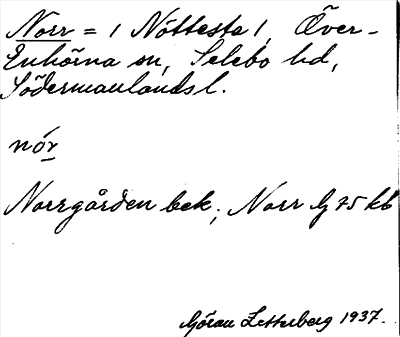 Norr = / Nöttesta /, Över-
Enhörna sn, Selebo hd,
Södermanlands l.
nór
Norrgården bek.; Norr G 75 kb
Göran Zetterberg 1937.